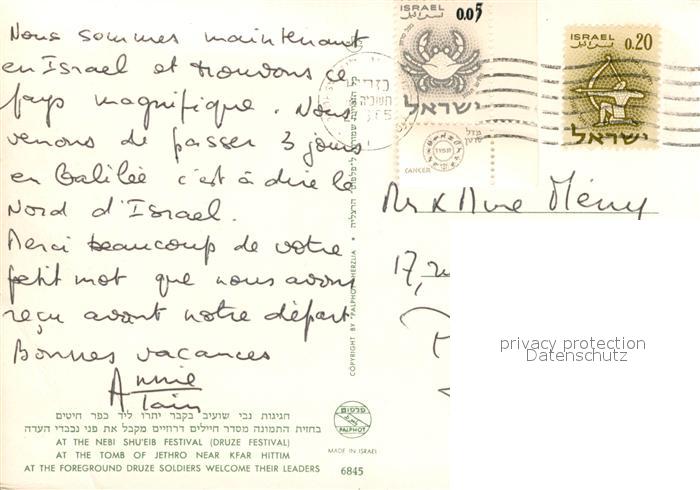 Nous sommes maintenant
en Israel et trouvons ce
pays magnifique. Nous
venons de passer 3 jours
en Galilée c'est à dire le
Nord d'Israel.
Merci beaucoup de votre
petit mot que nous avons
reçu avant notre départ
Bonnes vacances
Annie
Alain
חגיגות נבי שועיב בקבר יתרו ליד כפר חיטים
בחזית התמונה מסדר חיילים דרוזיים מקבל את פני נכבדי העדה
AT THE NEBI SHU'EIB FESTIVAL (DRUZE FESTIVAL)
AT THE TOMB OF JETHRO NEAR KFAR HITTIM
AT THE FOREGROUND DRUZE SOLDIERS WELCOME THEIR LEADERS
6845
COPYRIGHT BY "PALPHOT" HERZLIA
פלפוט
PALPHOT
MADE IN ISRAEL
ISRAEL
0.05
ישראל
CANCER
ISRAEL
اسرائيل
0.20
ישראל
Mr & Mme Mény
17,
privacy protection
Datenschutz